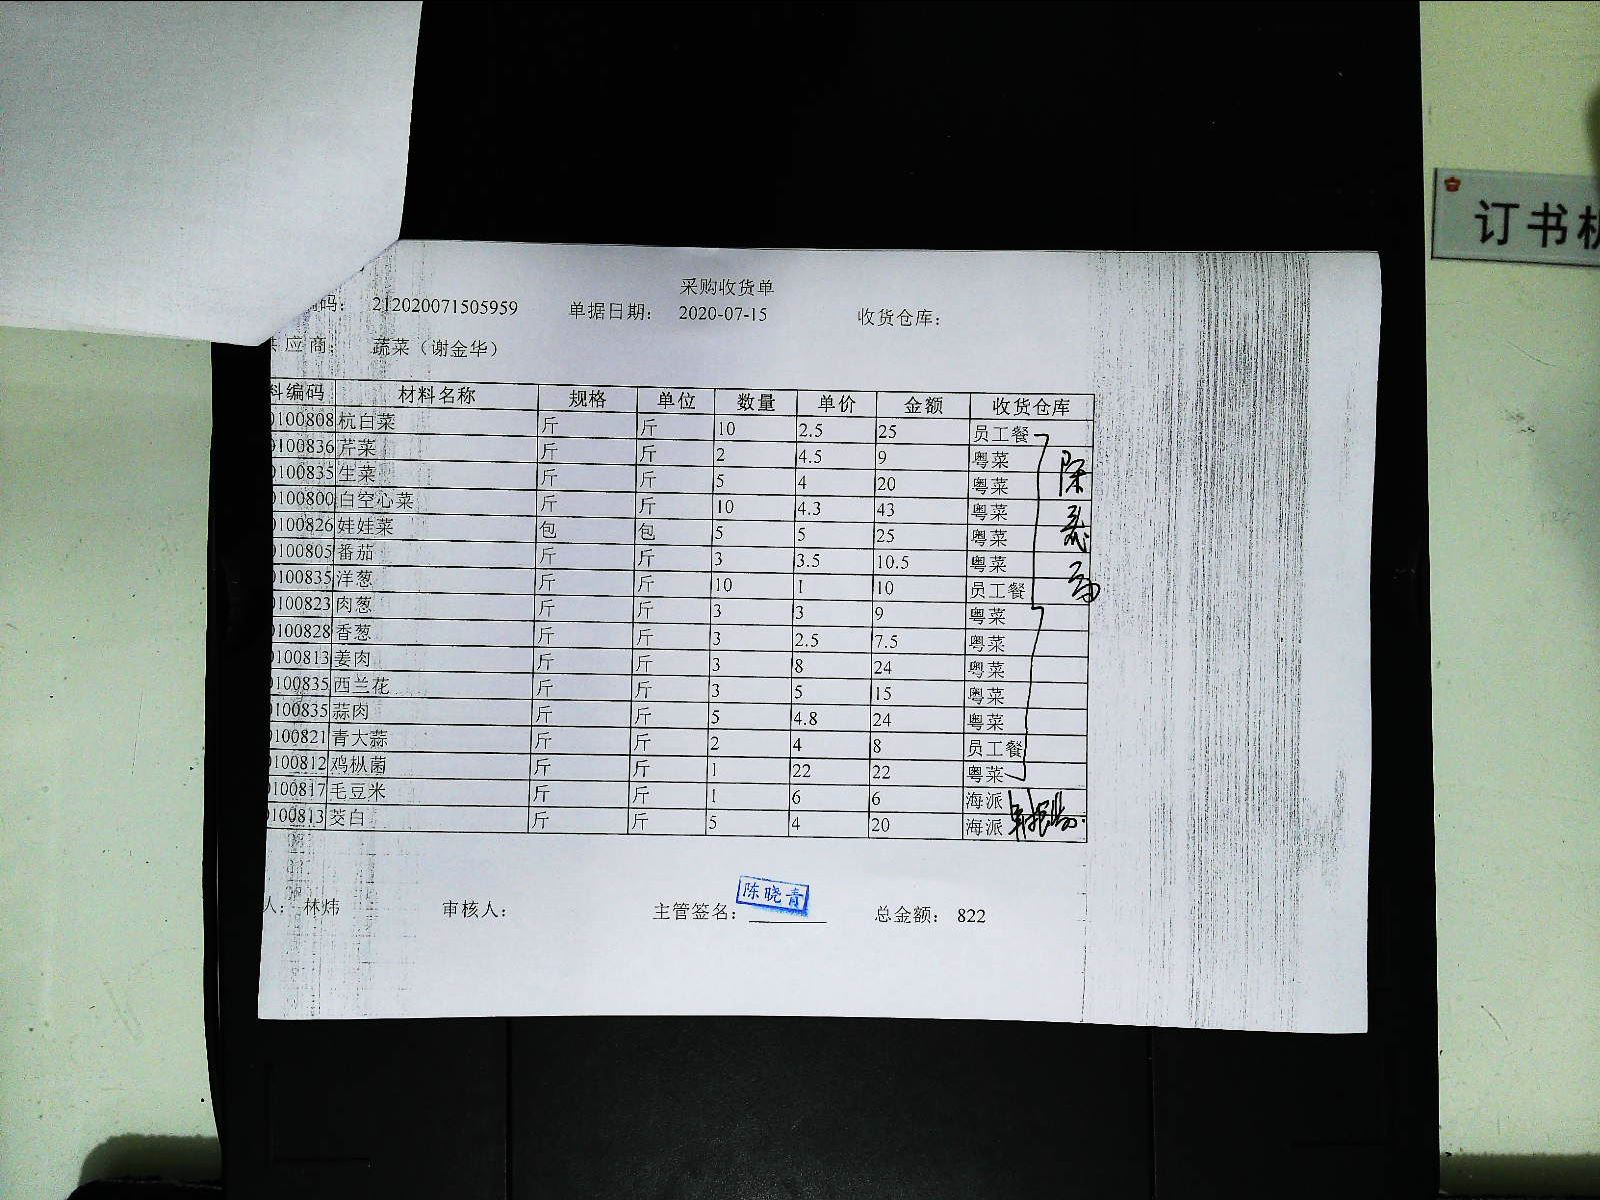 订书机
采购收货单
码： 212020071505959 单据日期： 2020-07-15 收货仓库：
应商： 蔬菜（谢金华）
料编码 材料名称 规格 单位 数量 单价 金额 收货仓库
0100808 杭白菜 斤 斤 10 2.5 25 员工餐
0100836 芹菜 斤 斤 2 4.5 9 粤菜
0100835 生菜 斤 斤 5 4 20 粤菜
0100800 白空心菜 斤 斤 10 4.3 43 粤菜
0100826 娃娃菜 包 包 5 5 25 粤菜
0100805 番茄 斤 斤 3 3.5 10.5 粤菜
0100835 洋葱 斤 斤 10 1 10 员工餐
0100823 肉葱 斤 斤 3 3 9 粤菜
0100828 香葱 斤 斤 3 2.5 7.5 粤菜
0100813 姜肉 斤 斤 3 8 24 粤菜
0100835 西兰花 斤 斤 3 5 15 粤菜
0100835 蒜肉 斤 斤 5 4.8 24 粤菜
0100821 青大蒜 斤 斤 2 4 8 员工餐
0100812 鸡枞菌 斤 斤 1 22 22 粤菜
0100817 毛豆米 斤 斤 1 6 6 海派
0100813 茭白 斤 斤 5 4 20 海派
人： 林炜 审核人： 主管签名： 陈晓青 总金额： 822